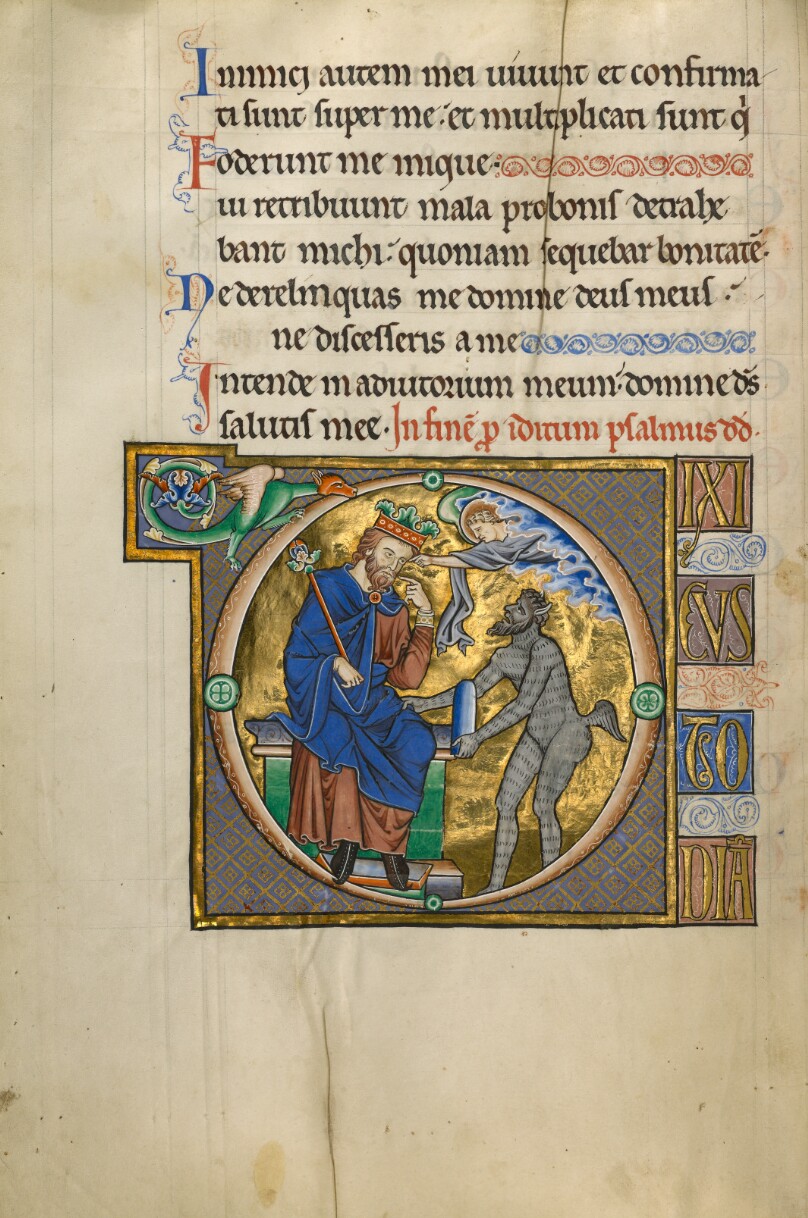 Inimici autem mei uiuunt et confirma
ti sunt super me. et multiplicati sunt q̇
Foderunt me inique.
ui retribuunt mala pro bonis detrahe
bant michi. quoniam sequebar bonitatē.
Ne derelinquas me domine deus meus.
ne discesseris a me
Intende in adiutorium meum. domine ds̄
salutis mee. In finē p̱ iditum psalmus dd̄.
D
IXI
CVS
TO
DIĀ